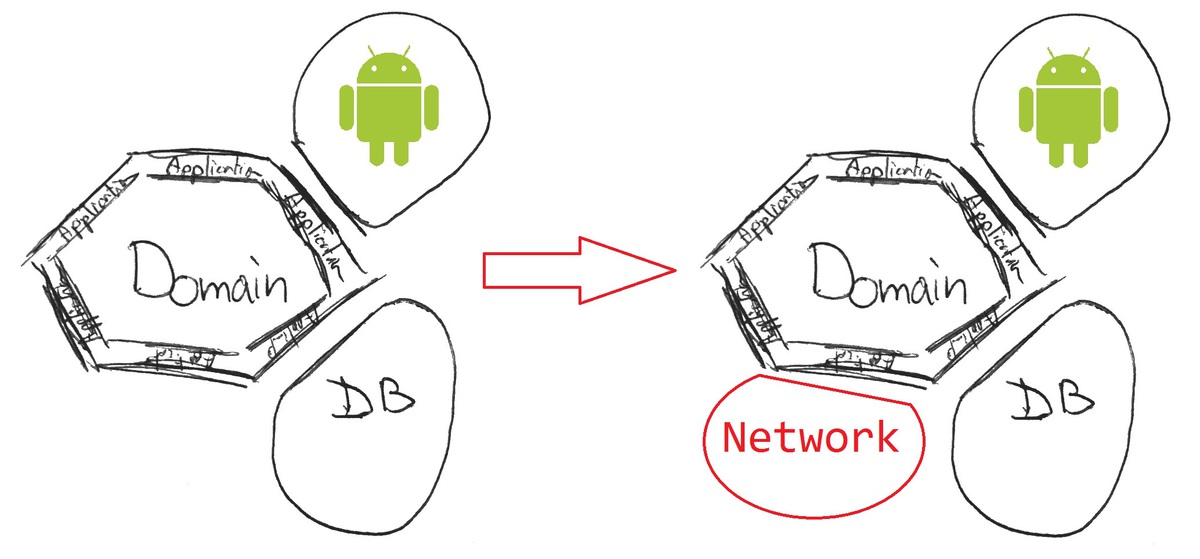 Applicatio
Applicatio
Applicatio
Domain
DB
Applicatio
Applicatio
Applicatio
Domain
DB
Network